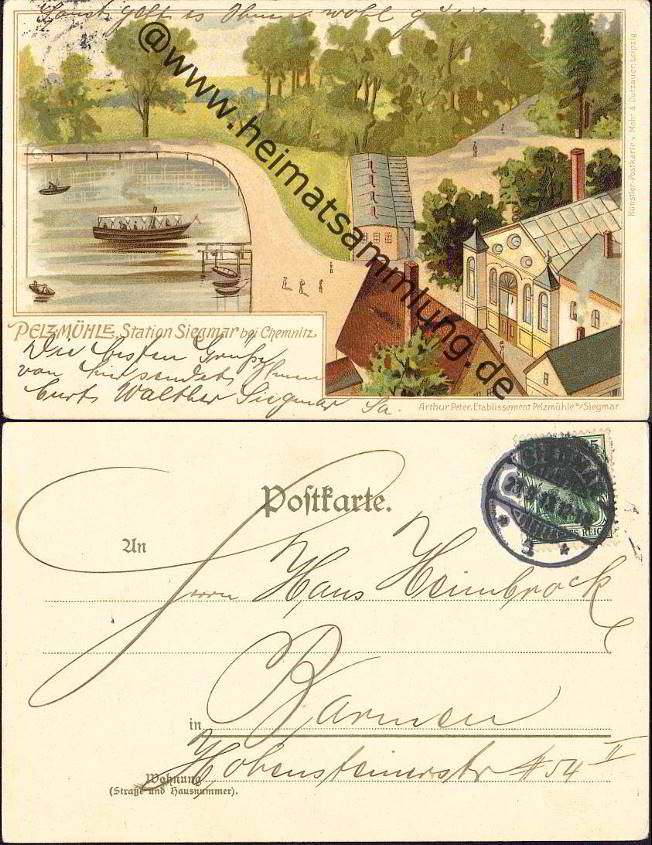 Sonst geht es Ihnen wohl
@www.heimatsammlung.de
Künstler-Postkarte v. Mohr & Dutzauer, Leipzig
PELZMÜHLE, Station Siegmar bei Chemnitz
Die besten Grüße
von hier sendet Ihnen
Curt Walther Siegmar Sa.
Arthur Peter, Etablissement Pelzmühle b/Siegmar
Postkarte.
An
Herrn Hans Heimbrock
in Barmen
Wohnung Hohensteinerstr # 54 II
(Straße und Hausnummer).
SIEGMAR
5
REICH